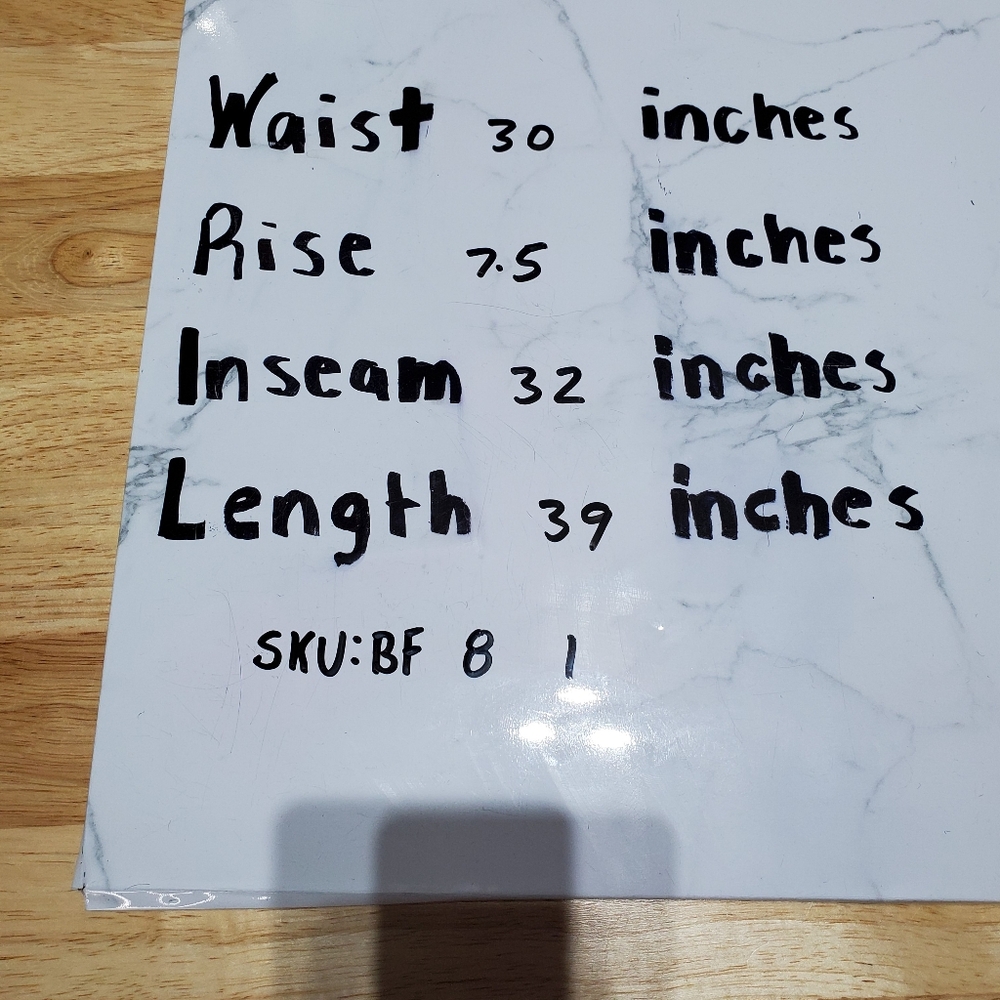 Waist 30 inches
Rise 7.5 inches
Inseam 32 inches
Length 39 inches
SKU:BF 8 1